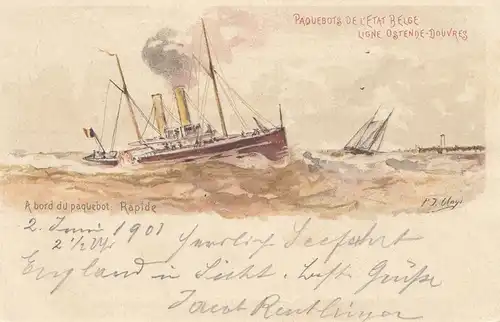 PAQUEBOTS DE L'ETAT BELGE
LIGNE OSTENDE-DOUVRES
A bord du paquebot Rapide
2. Juni 1901
2 1/2 Uhr
Herrlich Seefahrt
England in Sicht. Grüße
Jacob Reutlinger